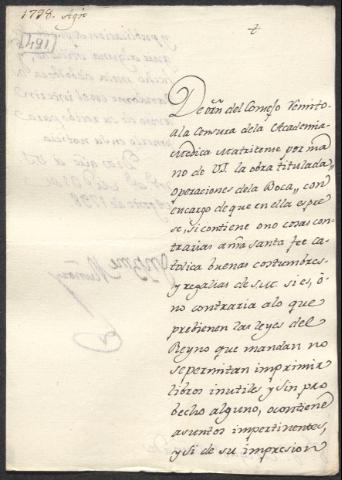 1798. Agto
[491]
De orn del Consejo Remito
ala Censura dela Academia
Medica Matritense por ma
no de VI. la obra titulada
operaciones dela Boca, con
encargo de que en ella expre
se, si contiene ono cosas con
trarias a nra santa fee ca
tolica buenas costumbres,
y regalias de S.M. si es, ō
no contraria alo que
prebienen las leyes del
Reyno que mandan no
sepermitan imprimir
libros inutiles y sin pro
becho alguno, ocontiene
asuntos impertinentes,
y si de su impresion